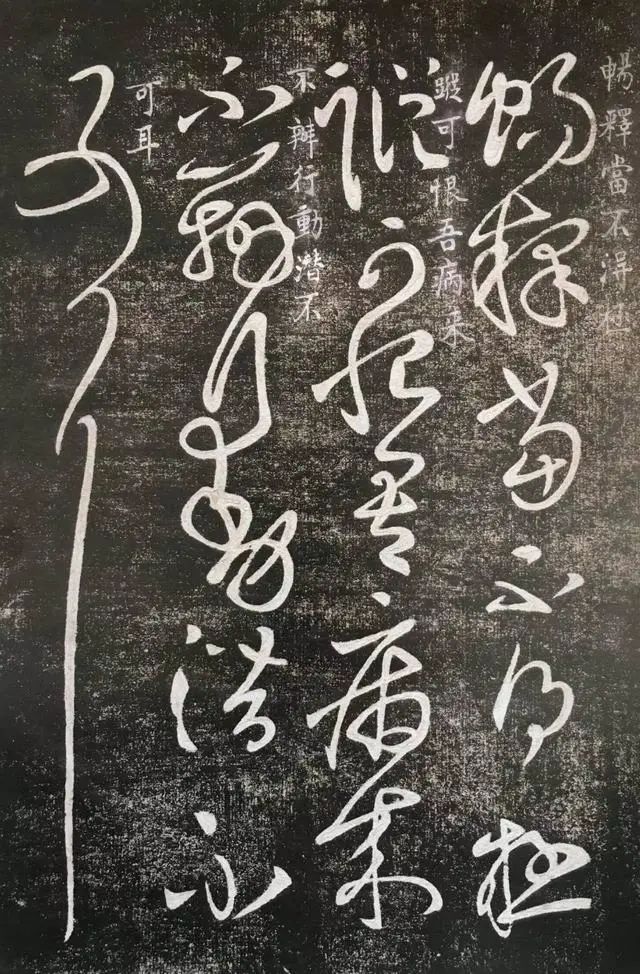 暢釋當不得極
暢釋當不得極
蹤可恨吾病来
蹤可恨吾病来
不辨行動潜不
不辨行動潜不
可耳
可耳